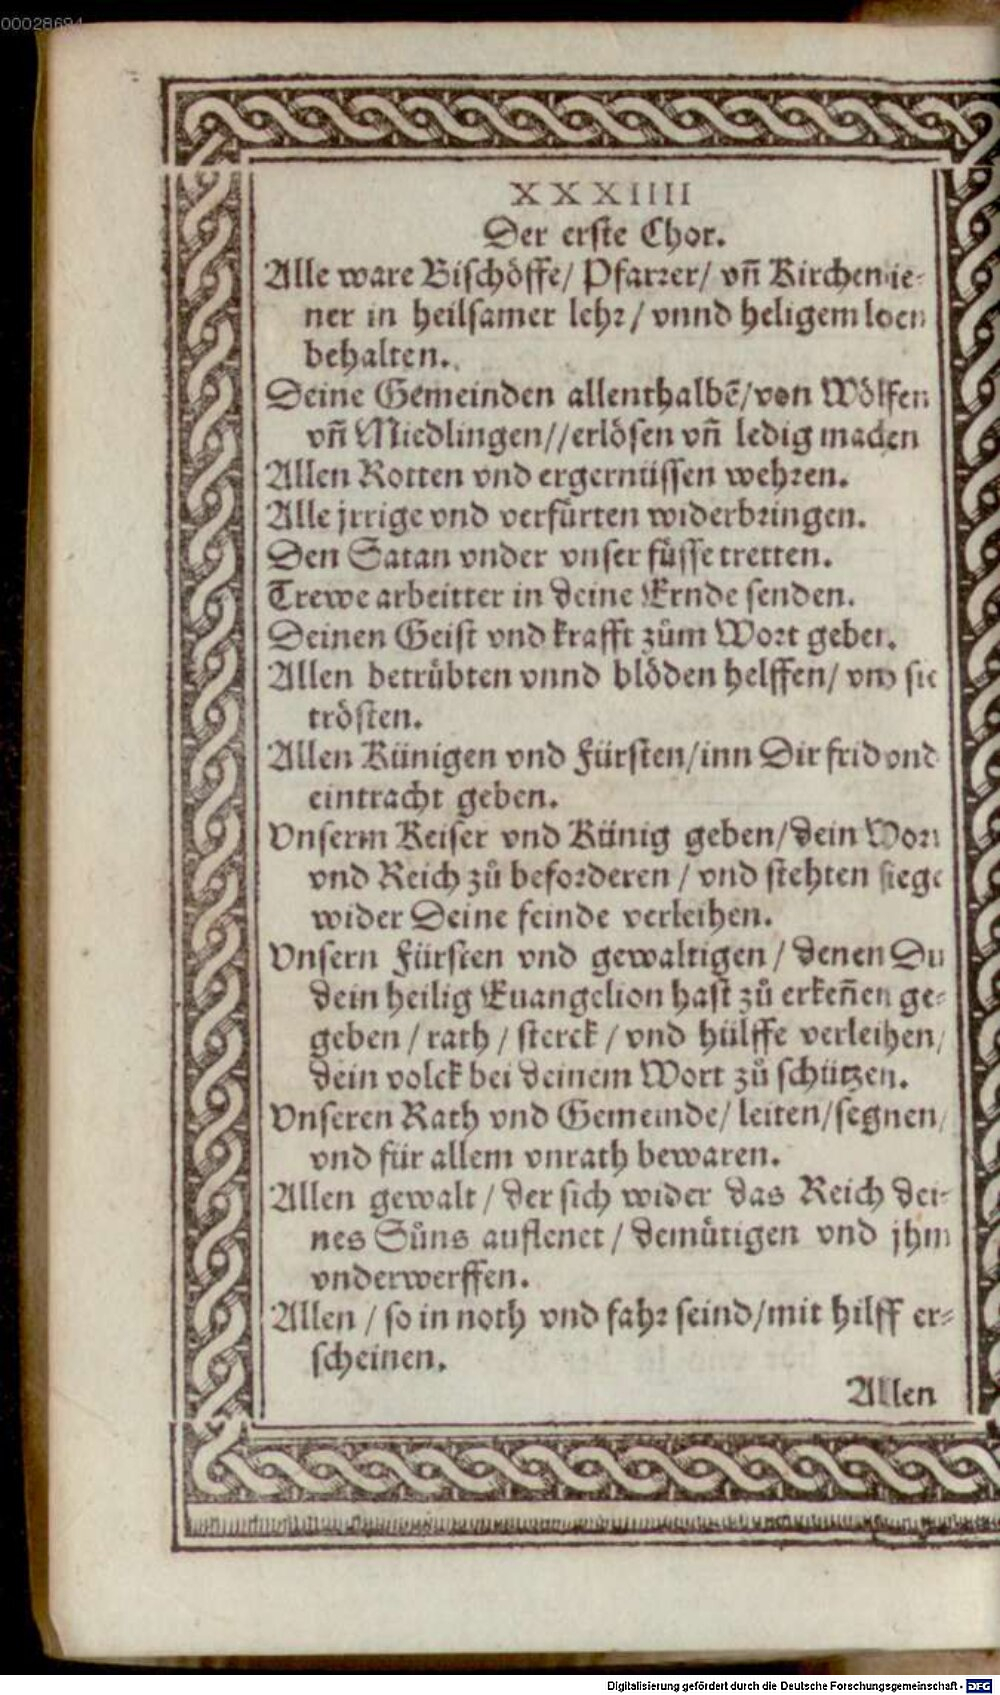 00028694
XXXIIII
Der erste Chor.
Alle ware Bischöffe/ Pfarrer/ vñ Kirchendie-
ner in heilsamer lehr/ vnnd heligem leben
behalten.
Deine Gemeinden allenthalbẽ/von Wölfen
vñ Miedlingen//erlösen vñ ledig machen
Allen Rotten vnd ergernüssen wehren.
Alle jrrige vnd verfürten widerbringen.
Den Satan vnder vnser füsse tretten.
Trewe arbeitter in deine Ernde senden.
Deinen Geist vnd krafft zům Wort geben.
Allen betrübten vnnd blöden helffen/ vnd sie
trösten.
Allen Künigen vnd Fürsten/inn Dir frid vnd
eintracht geben.
Vnserm Keiser vnd Künig geben/dein Wort
vnd Reich zů beforderen / vnd stehten siege
wider Deine feinde verleihen.
Vnsern Fürsten vnd gewaltigen / denen Du
dein heilig Euangelion hast zů erkeñen ge-
geben / rath / sterck / vnd hülffe verleihen/
dein volck bei deinem Wort zů schützen.
Vnseren Rath vnd Gemeinde/ leiten/segnen/
vnd für allem vnrath bewaren.
Allen gewalt / der sich wider das Reich dei-
nes Sůns auflenet / demütigen vnd jhm
vnderwerffen.
Allen / so in noth vnd fahr seind/mit hilff er-
scheinen.
Allen
Digitalisierung gefördert durch die Deutsche Forschungsgemeinschaft - DFG